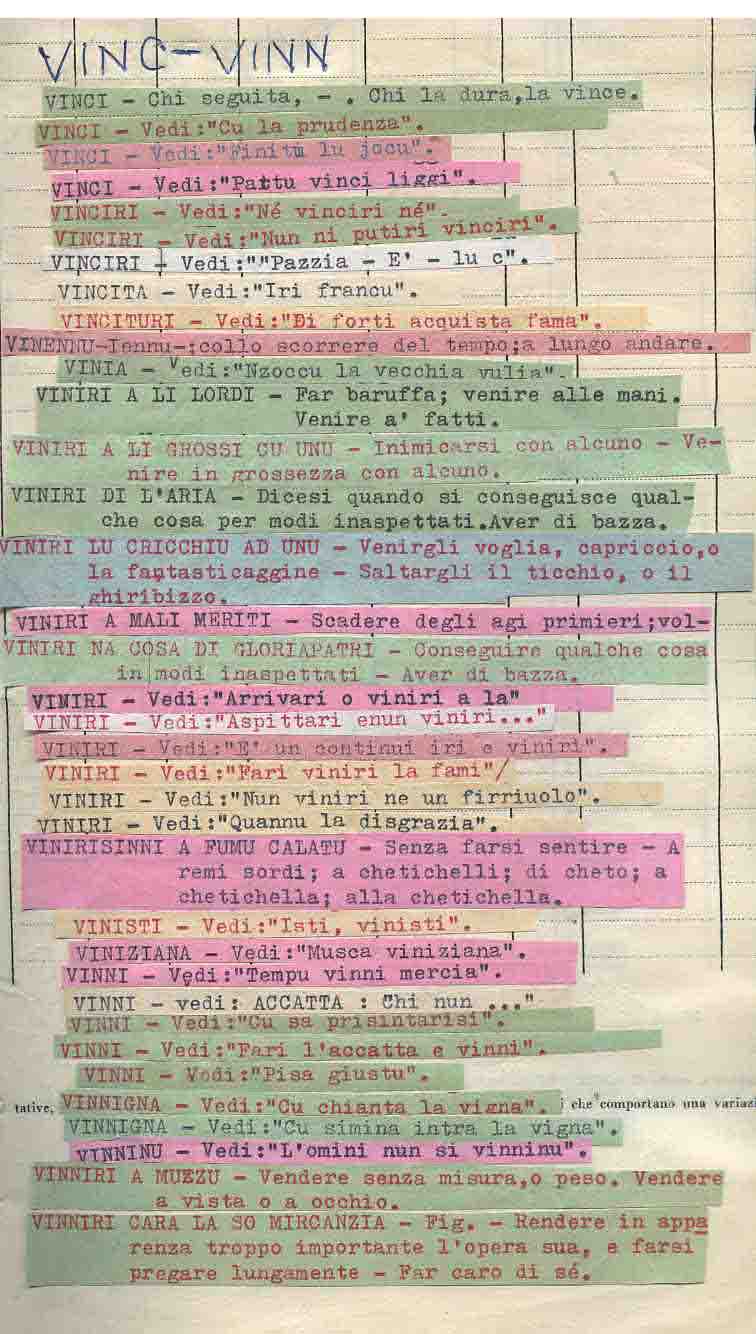 VINC-VINN
VINCI - Chi seguita, - . Chi la dura,la vince.
VINCI - Vedi:"Cu la prudenza".
VINCI - Vedi:"Finitu lu jocu".
VINCI - Vedi:"Pattu vinci liggi".
VINCIRI - Vedi:"Né vinciri né".
VINCIRI - Vedi:"Nun ni putiri vinciri".
VINCIRI - Vedi:""Pazzia - E' - lu c".
VINCITA - Vedi:"Iri francu".
VINCITURI - Vedi:"Di forti acquista fama".
VINENNU-Iennu-:collo scorrere del tempo;a lungo andare.
VINIA - Vedi:"Nzoccu la vecchia vulia".
VINIRI A LI LORDI - Far baruffa; venire alle mani.
Venire a' fatti.
VINIRI A LI GROSSI CU UNU - Inimicarsi con alcuno - Ve-
nire in grossezza con alcuno.
VINIRI DI L'ARIA - Dicesi quando si conseguisce qual-
che cosa per modi inaspettati.Aver di bazza.
VINIRI LU CRICCHIU AD UNU - Venirgli voglia, capriccio,o
la fantasticaggine - Saltargli il ticchio, o il
ghiribizzo.
VINIRI A MALI MERITI - Scadere degli agi primieri;vol-
VINIRI NA COSA DI GLORIAPATRI - Conseguire qualche cosa
in modi inaspettati - Aver di bazza.
VINIRI - Vedi:"Arrivari o viniri a la"
VINIRI - Vedi:"Aspittari enun viniri..."
VINIRI - Vedi:"E' un continui iri e viniri".
VINIRI - Vedi:"Fari viniri la fami"/
VINIRI - Vedi:"Nun viniri ne un firriuolo".
VINIRI - Vedi:"Quannu la disgrazia".
VINIRISINNI A FUMU CALATU - Senza farsi sentire - A
remi sordi; a chetichelli; di cheto; a
chetichella; alla chetichella.
VINISTI - Vedi:"Isti, vinisti".
VINIZIANA - Vedi:"Musca viniziana".
VINNI - Vedi:"Tempu vinni mercia".
VINNI - vedi: ACCATTA : Chi nun ..."
VINNI - Vedi:"Cu sa prisintarisi".
VINNI - Vedi:"Fari l'accatta e vinni".
VINNI - Vedi:"Pisa giustu".
tative, VINNIGNA - Vedi:"Cu chianta la vigna". i che comportano una variazi
VINNIGNA - Vedi:"Cu simina intra la vigna".
VINNINU - Vedi:"L'omini nun si vinninu".
VINNIRI A MUZZU - Vendere senza misura,o peso. Vendere
a vista o a occhio.
VINNIRI CARA LA SO MIRCANZIA - Fig. - Rendere in appa
renza troppo importante l'opera sua, e farsi
pregare lungamente - Far caro di sé.